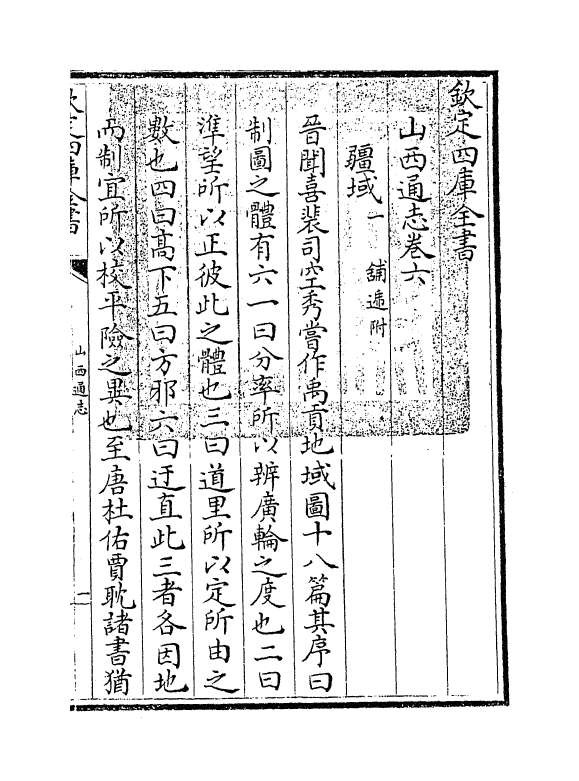 欽定四庫全書
山西通志卷六
疆域一 鋪遞附
晉聞喜裴司空秀嘗作禹貢地域圖十八篇其序曰
制圖之體有六一曰分率所以辨廣輪之度也二曰
準望所以正彼此之體也三曰道里所以定所由之
數也四曰高下五曰方邪六曰迂直此三者各因地
而制宜所以校平險之異也至唐杜佑賈耽諸書猶
欽定四庫全書
山西通志